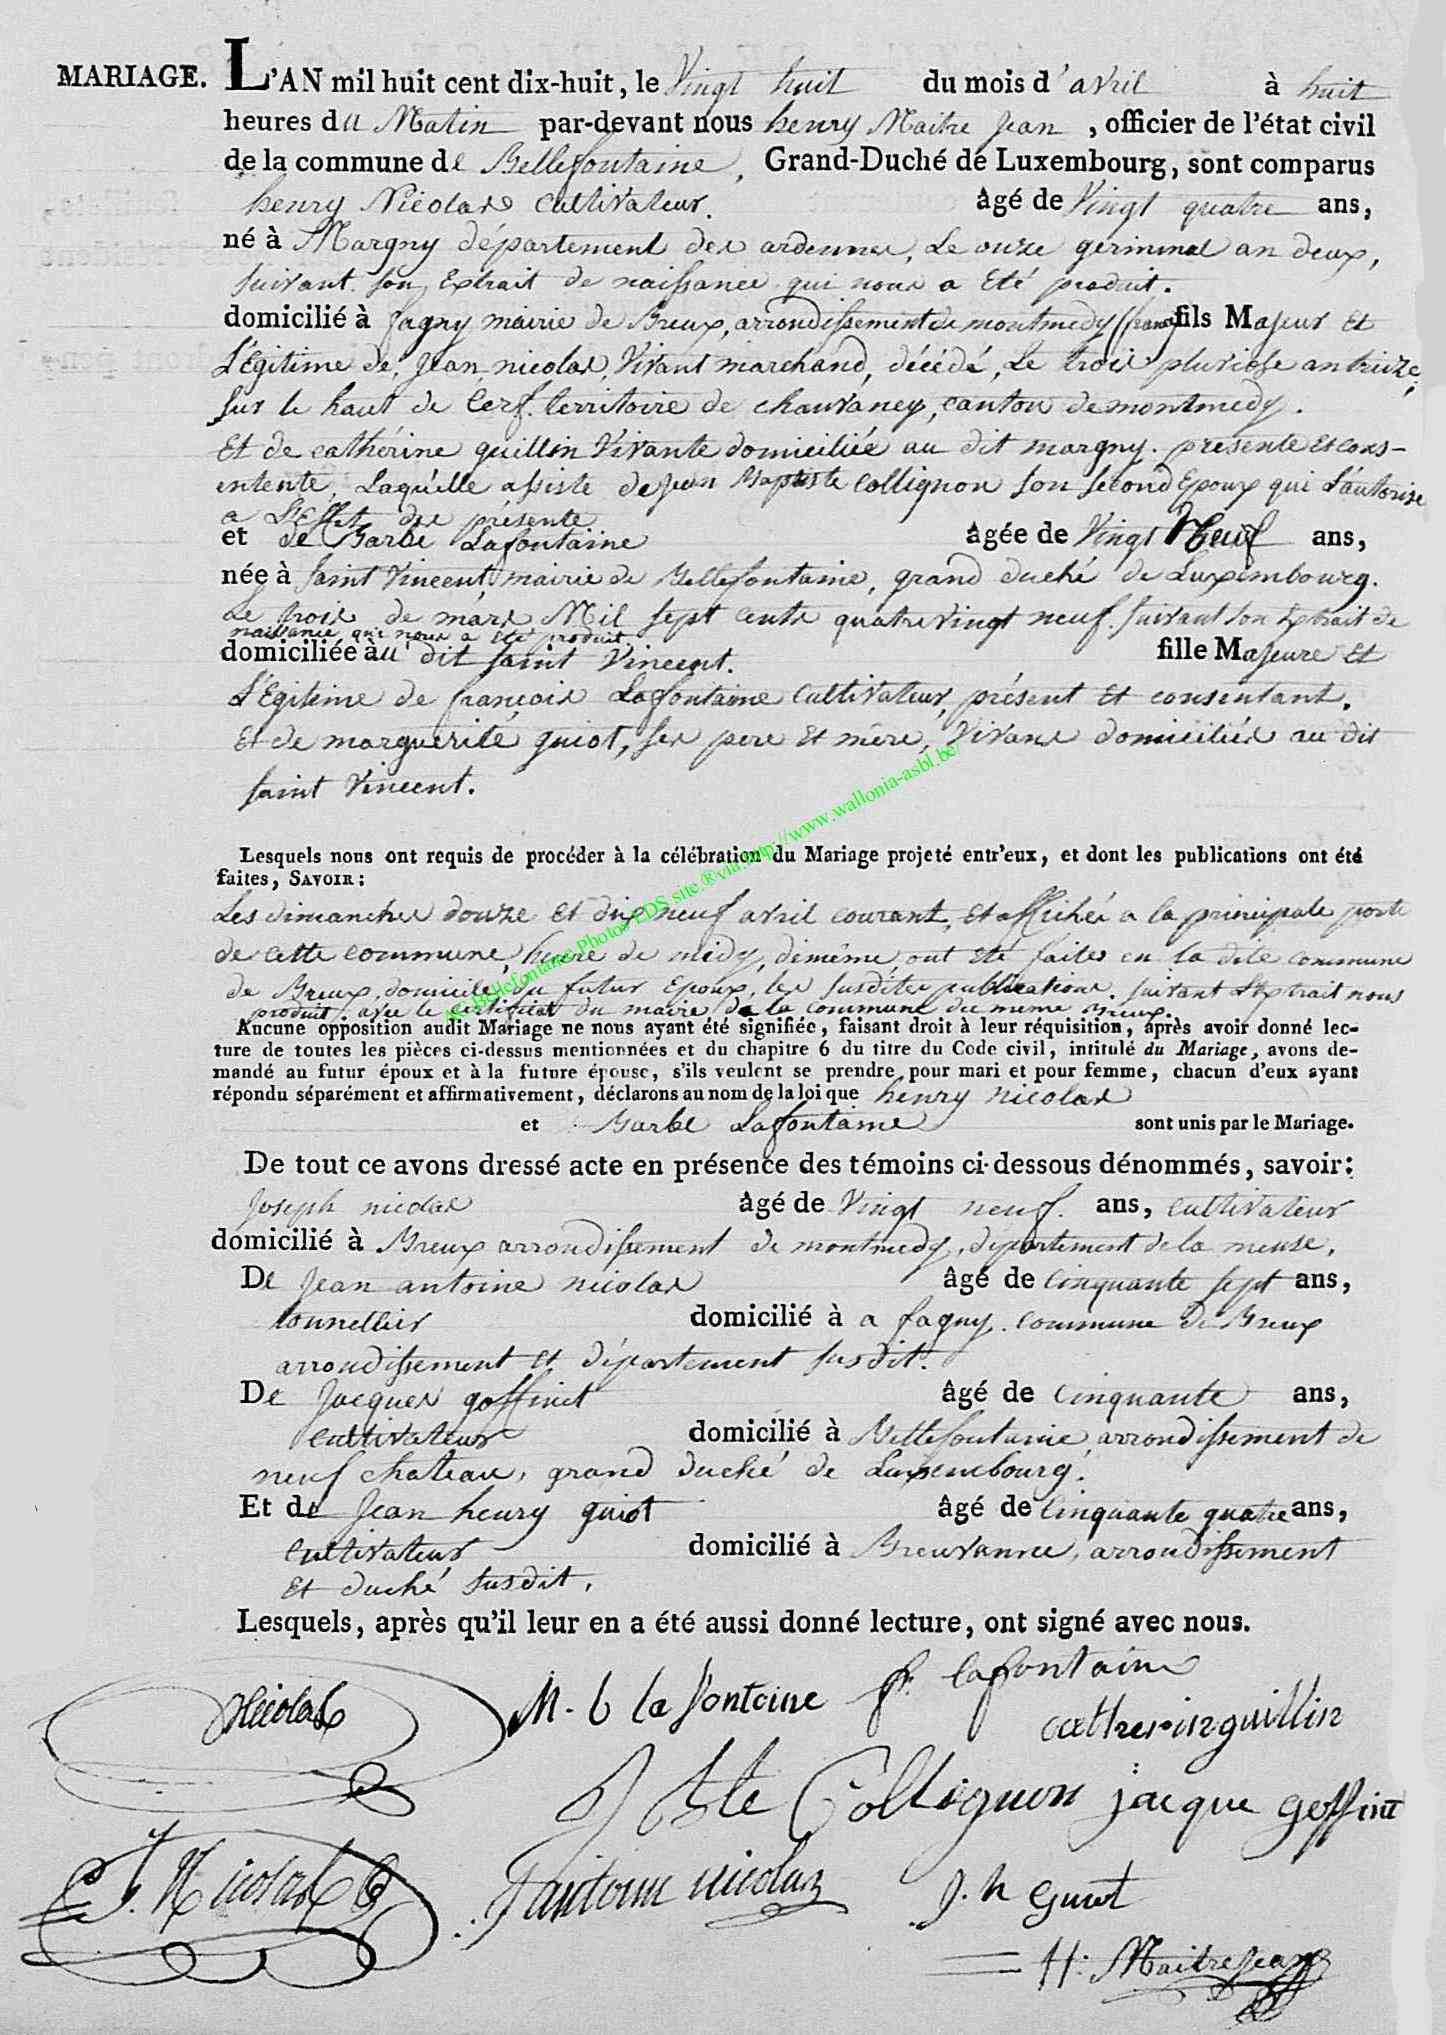 MARIAGE. L'AN mil huit cent dix-huit, le Vingt huit du mois d'avril à huit
heures du Matin par-devant nous henry Maitre Jean, officier de l'état civil
de la commune de Bellefontaine, Grand-Duché de Luxembourg, sont comparus
henry Nicolas Cultivateur. âgé de Vingt quatre ans,
né à Margny département des ardennes, Le onze germinal an deux,
suivant son Extrait de naissance qui nous a Eté produit.
domicilié à fagny mairie de Breux, arrondissement de montmedy (france) fils Majeur Et
L'Egitime de Jean nicolas, Vivant marchand, décédé, Le trois pluviose an treize,
sur le haut de Cerf. territoire de chauvancy, canton de montmedy.
Et de cathérine guillin Vivante domiciliée au dit margny. présente Et cons-
entente, Laquelle assiste de Jean Baptiste Collignon son second Epoux qui L'autorise
a L'Effet des présente
et de Barbe Lafontaine âgée de Vingt Neuf ans,
née à Saint Vincent, mairie de Bellefontaine, grand duché de Luxembourg.
Le trois de mars Mil sept cents quatrevingt neuf. suivant son Extrait de
naissance qui nous a été produit.
domiciliée àu dit saint Vincent. fille Majeure Et
L'Egitime de françois Lafontaine Cultivateur, présent Et consentant.
Et de marguerite guiot, ses pere Et mère, Vivans domiciliés au dit
saint Vincent.
Lesquels nous ont requis de procéder à la célébration du Mariage projeté entr'eux, et dont les publications ont été
faites, SAVOIR:
Les dimanches douze Et dix neuf avril courant, Et affichés a la principale porte
de cette commune, heure de midy, dimême, ont Eté faites en la dite commune
de Breux, domicile du futur Epoux, les susdites publications. suivant L'Extrait nous
produit. avec le certificat du maire de la commune du meme Breux.
Aucune opposition audit Mariage ne nous ayant été signifiée, faisant droit à leur réquisition, après avoir donné lec-
ture de toutes les pièces ci-dessus mentionnées et du chapitre 6 du titre du Code civil, intitulé du Mariage, avons de-
mandé au futur époux et à la future épouse, s'ils veulent se prendre pour mari et pour femme, chacun d'eux ayant
répondu séparément et affirmativement, déclarons au nom de la loi que henry nicolas
et Barbe Lafontaine sont unis par le Mariage.
De tout ce avons dressé acte en présence des témoins ci-dessous dénommés, savoir:
Joseph nicolas âgé de Vingt neuf. ans, cultivateur
domicilié à Breux arrondissement de montmedy, departement de la meuse.
De Jean antoine nicolas âgé de Cinquante sept ans,
tonnellier domicilié à a fagny. commune de Breux
arrondissement et département susdit.
De Jacques goffinet âgé de cinquante ans,
Cultivateur domicilié à Bellefontaine, arrondissement de
neuf chateau, grand duché de Luxembourg.
Et de Jean henry guiot âgé de Cinquante quatre ans,
Cultivateur domicilié à Breuvanne, arrondissement
Et duché susdit.
Lesquels, après qu'il leur en a été aussi donné lecture, ont signé avec nous.
Nicolas M. b la fontaine f. lafontaine
catherin guillin
J Bte Collignon jacque goffint
J. Nicolas J antoine nicolas J. h Guiot
H. Maitrejean
Ac Bellefontaine Photos EDS site.® via http://www.wallonia-asbl.be/